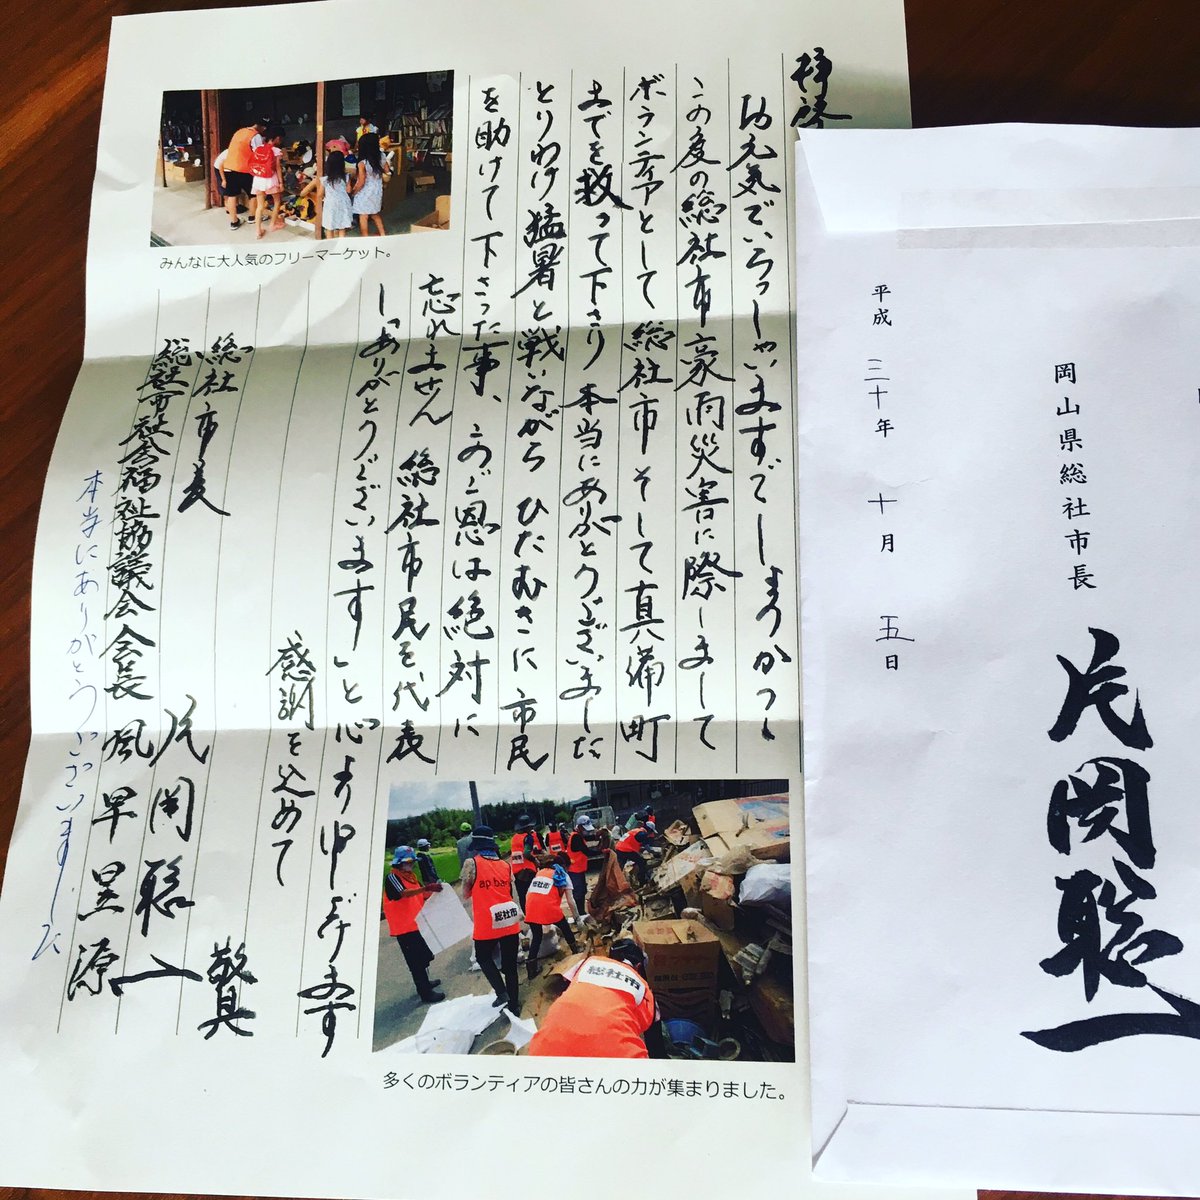 拝啓
お元気でいらっしゃいますでしょうか
この度の総社市豪雨災害に際しまして
ボランティアとして総社市そして真備町
までを救って下さり 本当にありがとうございました
とりわけ猛暑と戦いながら ひたむきに市民
を助けて下さった事、このご恩は絶対に
忘れません 総社市民を代表
し「ありがとうございます」と心より申し上げます
感謝を込めて
敬具
総社市長 片岡聡一
総社市社会福祉協議会会長 風早昱源
本当にありがとうございました
みんなに大人気のフリーマーケット。
総社市
総社市
総社市
多くのボランティアの皆さんの力が集まりました。
岡山県総社市長 片岡聡一
平成三十年十月五日